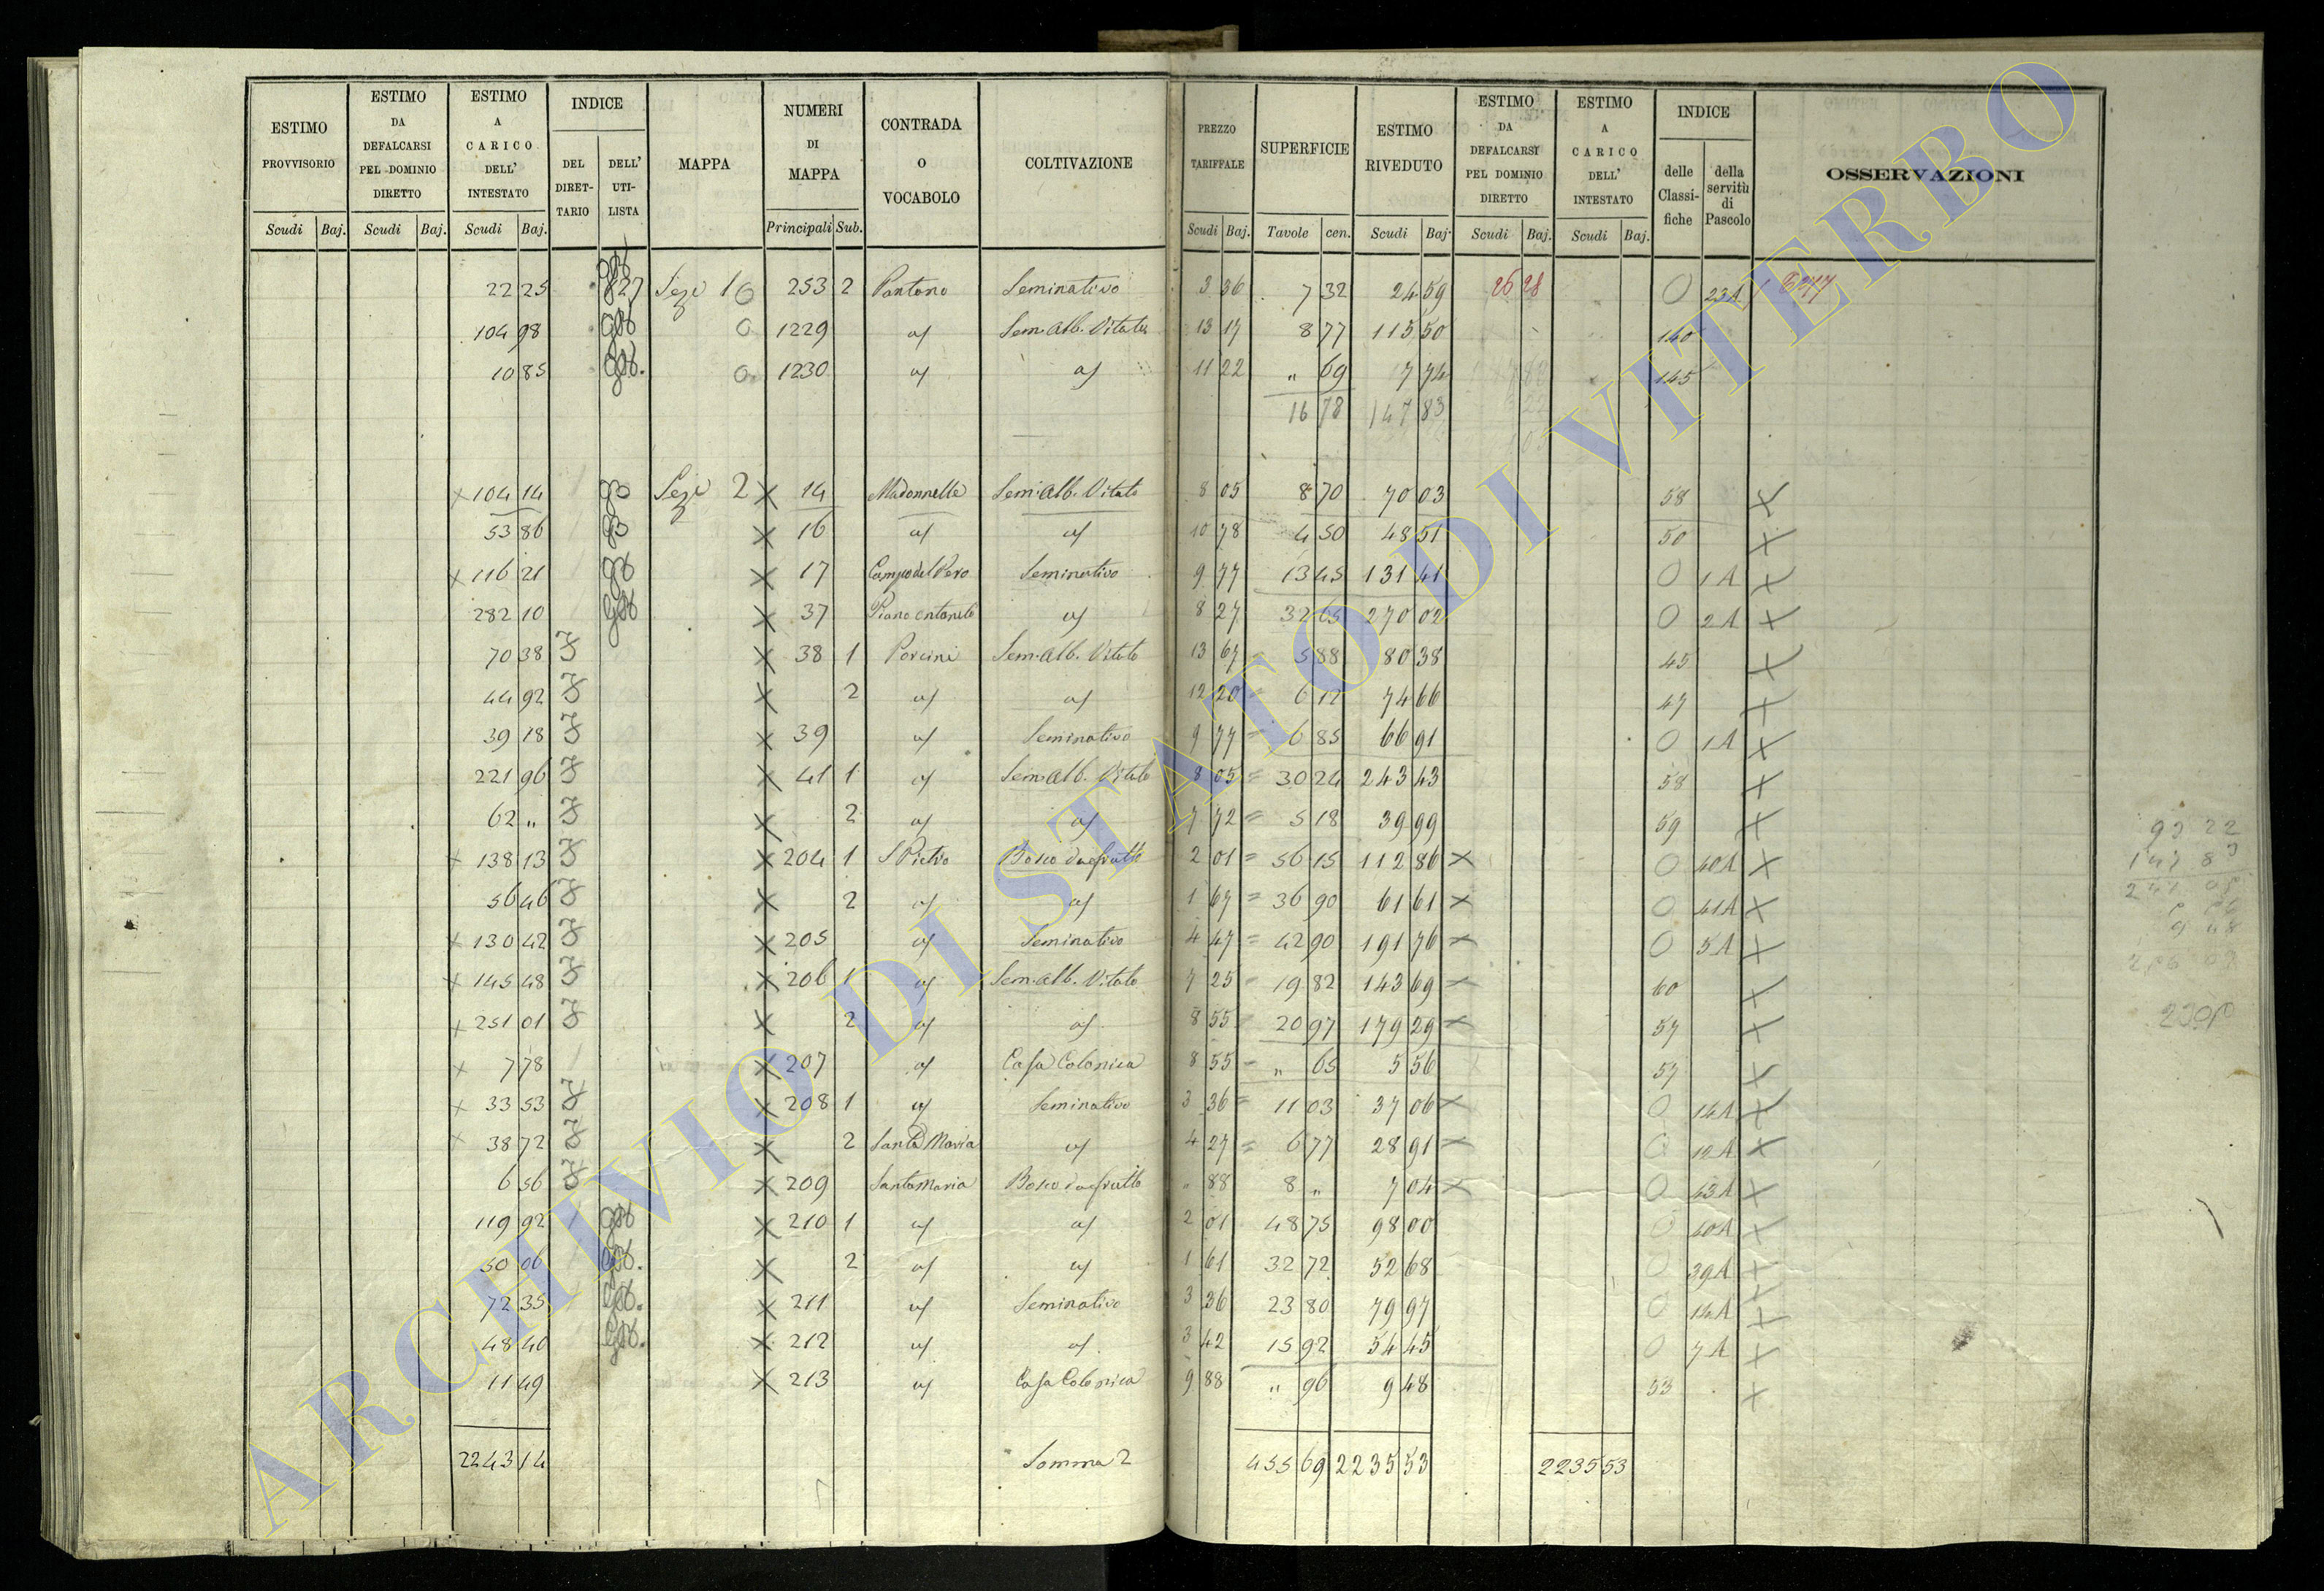 ESTIMO PROVVISORIO | ESTIMO DA DEFALCARSI PEL DOMINIO DIRETTO | ESTIMO A CARICO DELL' INTESTATO | INDICE | MAPPA | NUMERI DI MAPPA | CONTRADA O VOCABOLO | COLTIVAZIONE | PREZZO TARIFFALE | SUPERFICIE | ESTIMO RIVEDUTO | ESTIMO DA DEFALCARSI PEL DOMINIO DIRETTO | ESTIMO A CARICO DELL' INTESTATO | INDICE | OSSERVAZIONI
DEL DIRETTARIO | DELL' UTILISTA | delle Classifiche | della servitù di Pascolo
Scudi | Baj. | Scudi | Baj. | Scudi | Baj. | Principali | Sub. | Scudi | Baj. | Tavole | cen. | Scudi | Baj. | Scudi | Baj. | Scudi | Baj.
22 25 | Sez.e 1 | 253 2 | Pantano | Seminativo | 3 36 | 7 32 | 24 59 | 26 28 | 0 | 23A
104 98 | 0 | 1229 | Sem. Alb. Vitato | 13 17 | 8 77 | 115 50 | 140
10 85 | 0 | 1230 | 11 22 | " 69 | 7 74 | 145
16 78 | 147 83
x 104 14 | Sez.e 2 x | 14 | Madonnelle | Sem. Alb. Vitato | 8 05 | 8 70 | 70 03 | 58 | x
53 86 | x | 16 | 10 78 | 4 50 | 48 51 | 50 | x
x 116 21 | x | 17 | Campo del Pero | Seminativo | 9 77 | 13 45 | 131 41 | 0 | 1A | x
282 10 | x | 37 | 8 27 | 32 65 | 270 02 | 0 | 2A | x
70 38 | x | 38 1 | Porcini | Sem. Alb. Vitato | 13 67 | 5 88 | 80 38 | 45 | x
44 92 | x | 2 | 12 20 | 6 12 | 74 66 | 47 | x
39 18 | x | 39 | Seminativo | 9 77 | 6 85 | 66 91 | 0 | 1A | x
221 96 | x | 41 1 | Sem. Alb. Vitato | 8 05 | 30 24 | 243 43 | 58 | x
62 " | x | 2 | 7 72 | 5 18 | 39 99 | 59 | x
x 138 13 | x | 204 1 | S Pietro | Bosco da frutto | 2 01 | 56 15 | 112 86 x | 0 | 40A | x
56 46 | x | 2 | 1 67 | 36 90 | 61 61 x | 0 | 41A | x
x 130 42 | x | 205 | Seminativo | 4 47 | 42 90 | 191 76 x | 0 | 5A | x
x 145 48 | x | 206 1 | Sem. Alb. Vitato | 7 25 | 19 82 | 143 69 x | 60 | x
x 251 01 | x | 2 | 8 55 | 20 97 | 179 29 x | 57 | x
x 7 78 | x | 207 | Casa Colonica | 8 55 | " 65 | 5 56 | 57 | x
x 33 53 | x | 208 1 | Seminativo | 3 36 | 11 03 | 37 06 x | 0 | 14A | x
x 38 72 | x | 2 | Santa Maria | 4 27 | 6 77 | 28 91 x | 0 | 12A | x
6 56 | x | 209 | Santa Maria | Bosco da frutto | " 88 | 8 " | 7 04 x | 0 | 43A | x
119 92 | x | 210 1 | 2 01 | 48 75 | 98 00 | 0 | 40A | x
50 06 | x | 2 | 1 61 | 32 72 | 52 68 | 0 | 39A | x
72 35 | x | 211 | Seminativo | 3 36 | 23 80 | 79 97 | 0 | 14A | x
48 40 | x | 212 | 3 42 | 15 92 | 54 45 | 0 | 7A | x
11 49 | x | 213 | Casa Colonica | 9 88 | " 96 | 9 48 | 53 | x
2243 14 | Somma 2 | 455 69 | 2235 53 | 2235 53
ARCHIVIO DI STATO DI VITERBO